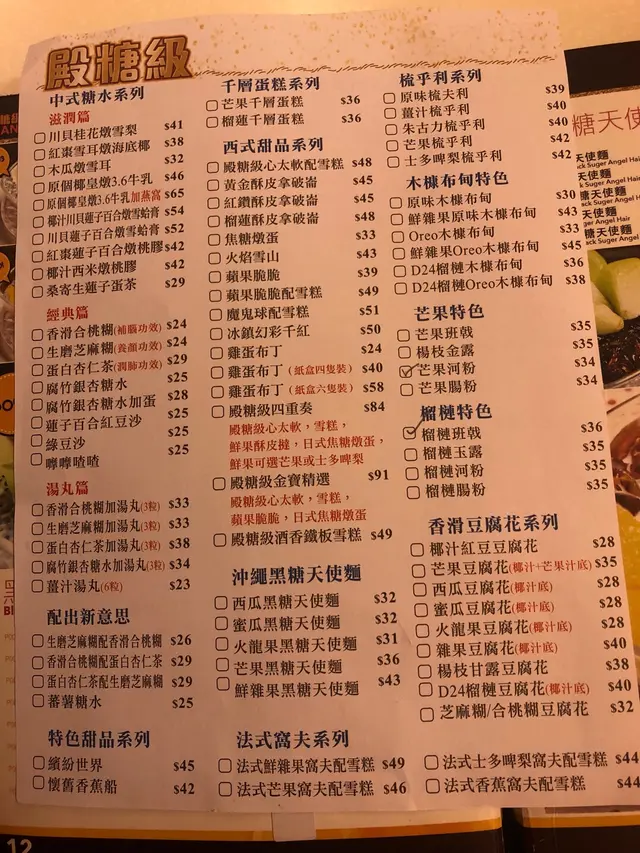 殿糖級
中式糖水系列
滋潤篇
川貝桂花燉雪梨 $41
紅棗雪耳燉海底椰 $38
木瓜燉雪耳 $32
原個椰皇燉3.6牛奶 $46
原個椰皇燉3.6牛奶加燕窩 $65
椰汁川貝蓮子百合燉雪蛤膏 $54
川貝蓮子百合燉雪蛤膏 $52
紅棗蓮子百合燉桃膠 $42
椰汁西米燉桃膠 $42
桑寄生蓮子蛋茶 $29
經典篇
香滑合桃糊(補腦功效) $24
生磨芝麻糊(養顏功效) $24
蛋白杏仁茶(潤肺功效) $29
腐竹銀杏糖水 $25
腐竹銀杏糖水加蛋 $28
蓮子百合紅豆沙 $25
綠豆沙 $25
嚤嚤喳喳 $25
湯丸篇
香滑合桃糊加湯丸(3粒) $33
生磨芝麻糊加湯丸(3粒) $33
蛋白杏仁茶加湯丸(3粒) $38
腐竹銀杏糖水加湯丸(3粒) $34
薑汁湯丸(6粒) $23
配出新意思
生磨芝麻糊配香滑合桃糊 $26
香滑合桃糊配蛋白杏仁茶 $29
蛋白杏仁茶配生磨芝麻糊 $29
蕃薯糖水 $25
特色甜品系列
繽紛世界 $45
懷舊香蕉船 $42
千層蛋糕系列
芒果千層蛋糕 $36
榴蓮千層蛋糕 $36
西式甜品系列
殿糖級心太軟配雪糕 $48
黃金酥皮拿破崙 $45
紅鑽酥皮拿破崙 $45
榴蓮酥皮拿破崙 $48
焦糖燉蛋 $33
火焰雪山 $43
蘋果脆脆 $39
蘋果脆脆配雪糕 $49
魔鬼球配雪糕 $51
冰鎮幻彩千紅 $50
雞蛋布丁 $24
雞蛋布丁(紙盒四隻裝) $40
雞蛋布丁(紙盒六隻裝) $58
殿糖級四重奏 $84
殿糖級心太軟，雪糕，
鮮果酥皮撻，日式焦糖燉蛋，
鮮果可選芒果或士多啤梨
殿糖級金寶精選 $91
殿糖級心太軟，雪糕，
蘋果脆脆，日式焦糖燉蛋
殿糖級酒香鐵板雪糕 $49
沖繩黑糖天使麵
西瓜黑糖天使麵 $32
蜜瓜黑糖天使麵 $32
火龍果黑糖天使麵 $31
芒果黑糖天使麵 $36
鮮雜果黑糖天使麵 $43
法式窩夫系列
法式鮮雜果窩夫配雪糕 $49
法式芒果窩夫配雪糕 $46
梳乎利系列
原味梳夫利 $39
薑汁梳乎利 $40
朱古力梳乎利 $40
芒果梳乎利 $42
士多啤梨梳乎利 $42
木槺布甸特色
原味木槺布甸 $30
鮮雜果原味木槺布甸 $43
Oreo木槺布甸 $33
鮮雜果Oreo木槺布甸 $45
D24榴槤木槺布甸 $36
D24榴槤Oreo木槺布甸 $38
芒果特色
芒果班戟 $35
楊枝金露 $35
芒果河粉 $34
芒果腸粉 $34
榴槤特色
榴槤班戟 $36
榴槤玉露 $35
榴槤河粉 $35
榴槤腸粉 $35
香滑豆腐花系列
椰汁紅豆豆腐花 $28
芒果豆腐花(椰汁+芒果汁底) $35
西瓜豆腐花(椰汁底) $28
蜜瓜豆腐花(椰汁底) $28
火龍果豆腐花(椰汁底) $28
雜果豆腐花(椰汁底) $40
楊枝甘露豆腐花 $38
D24榴槤豆腐花(椰汁底) $40
芝麻糊/合桃糊豆腐花 $32
法式士多啤梨窩夫配雪糕 $44
法式香蕉窩夫配雪糕 $44
糖天使
天使麵
Suger Angel Hair
天使麵
ck Suger Angel Hair
糖天使麵
ack Suger Angel Hair
糖天使麵
ack Suger Angel Hair
12